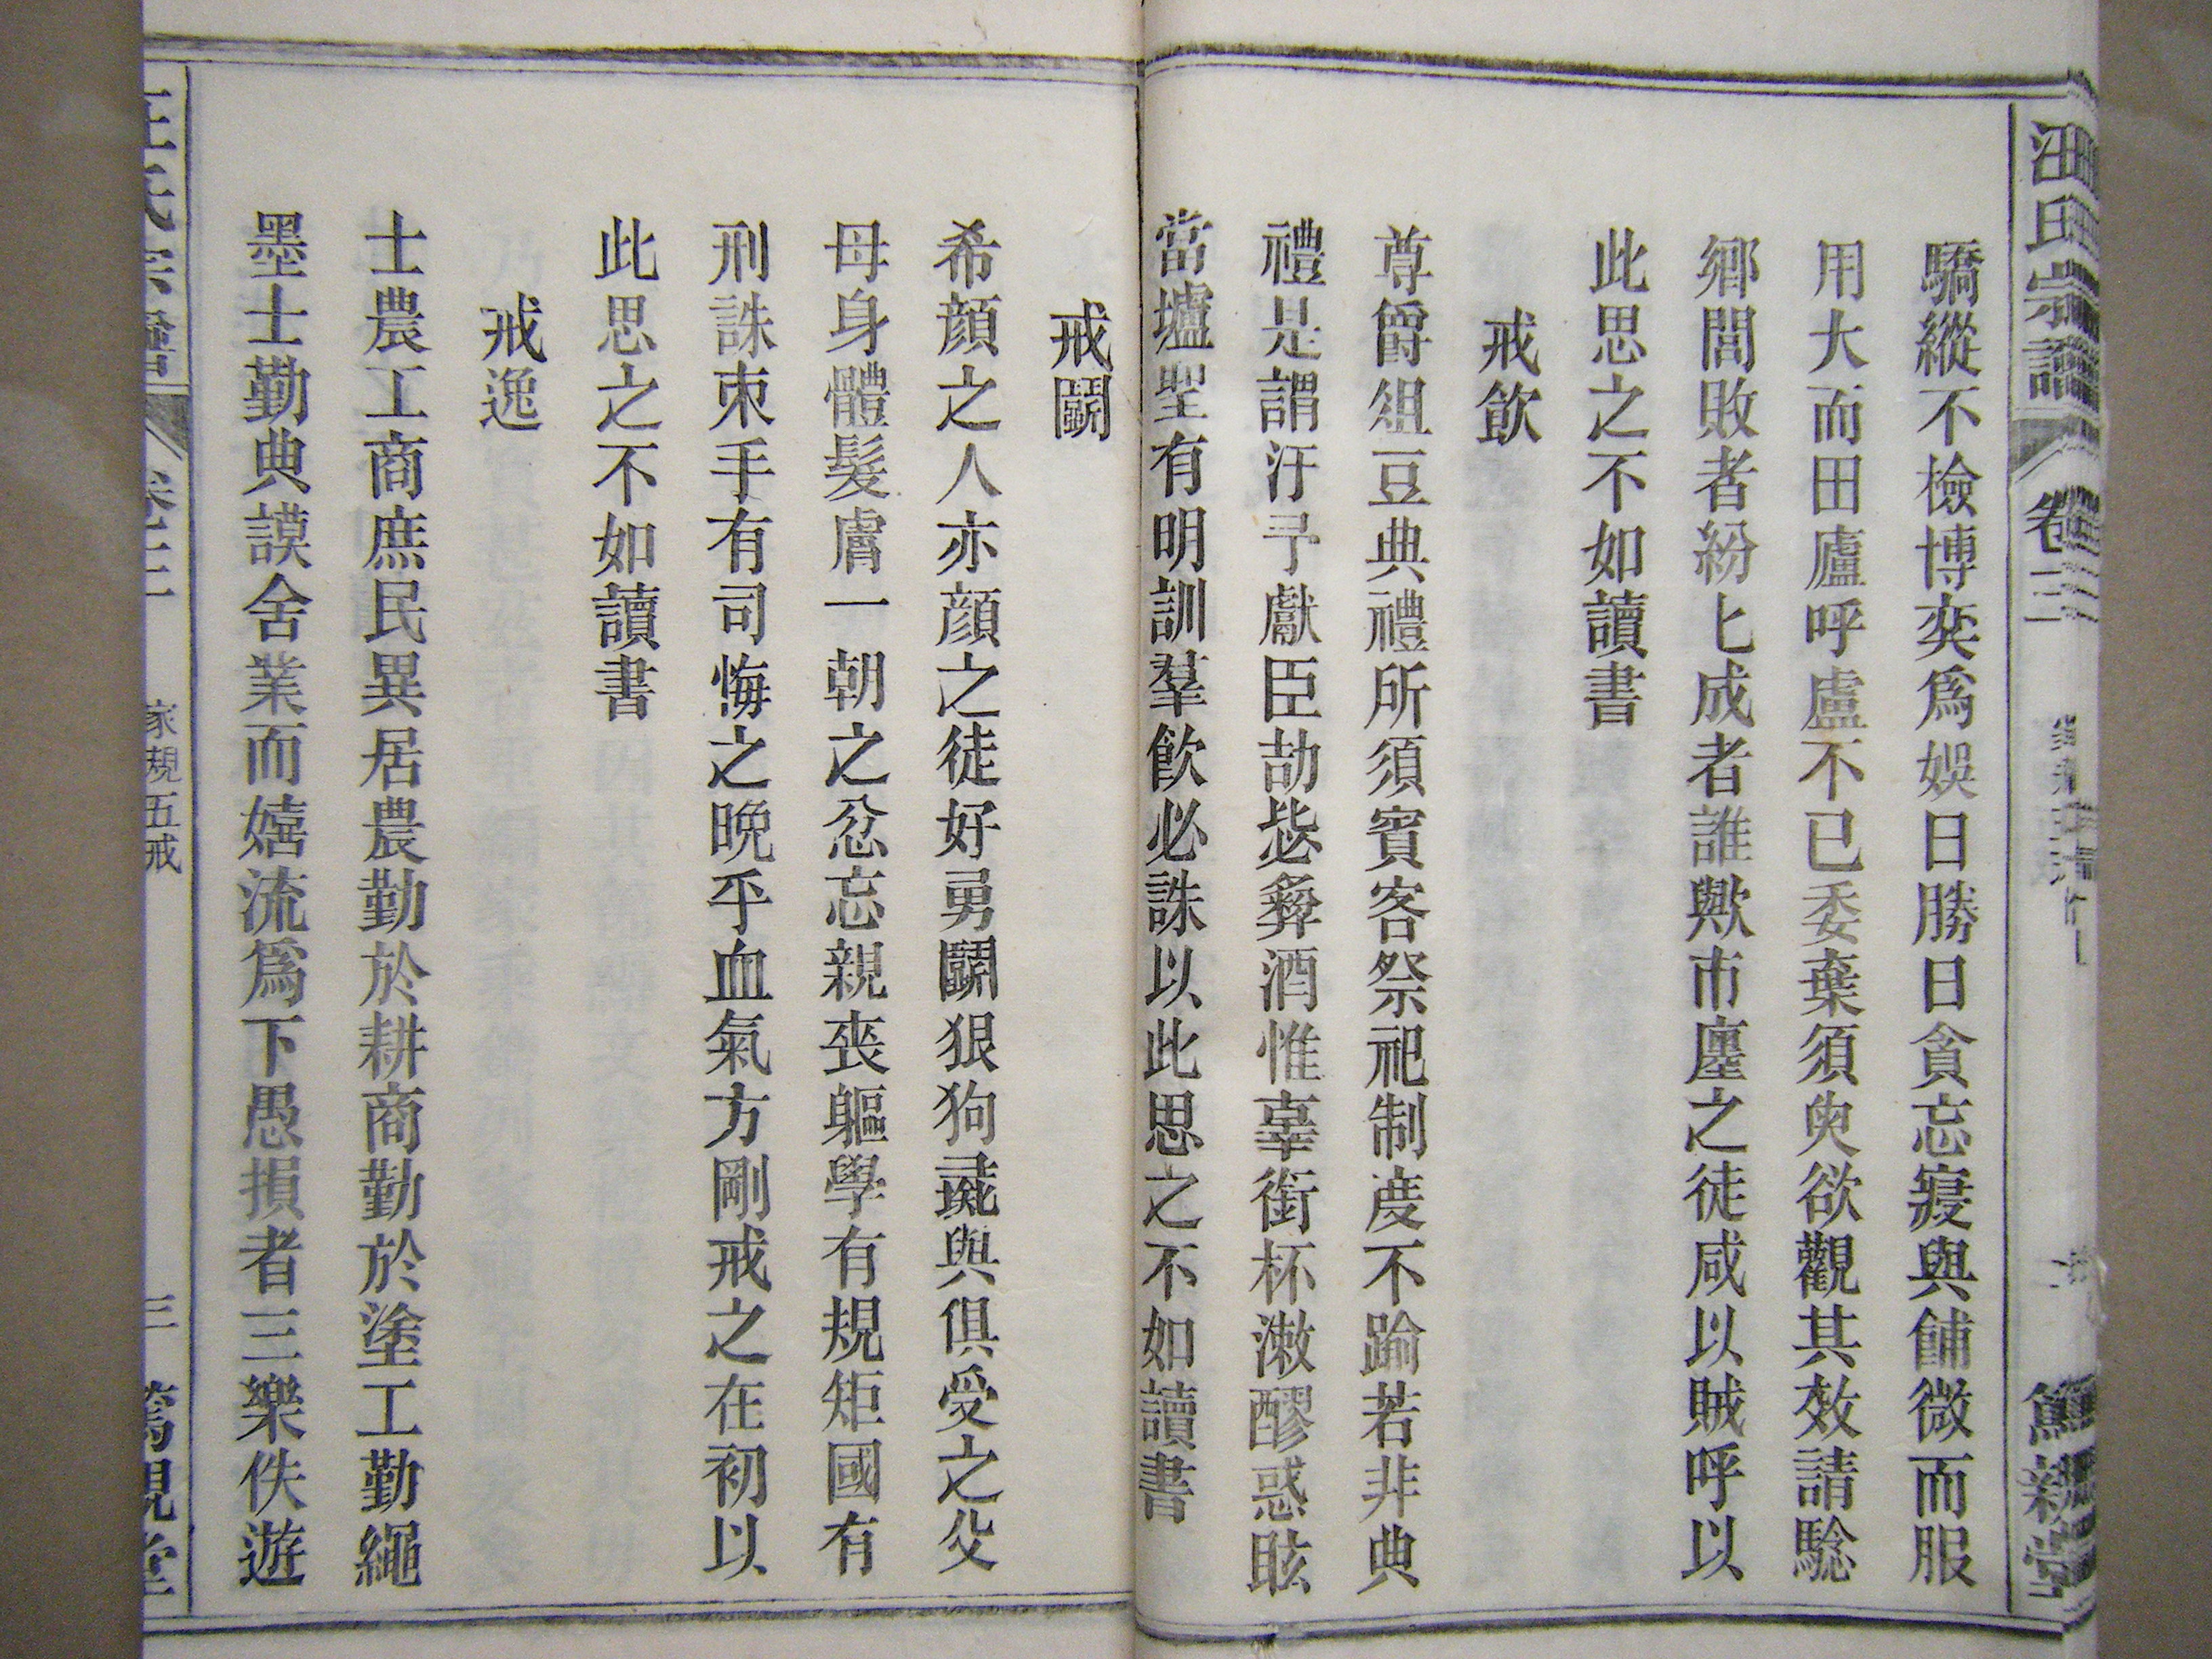 汪氏宗譜
卷三
篤親堂
驕縱不檢博奕爲娛日勝日貪忘寢與餔微而服
用大而田廬呼盧不已委棄須臾欲觀其效請騐
鄉閭敗者紛匕成者誰歟市廛之徒咸以賊呼以
此思之不如讀書
戒飮
尊爵俎豆典禮所須賓客祭祀制度不踰若非典
禮是謂汙予獻臣劼毖彜酒惟辜銜杯漱醪惑眩
當壚聖有明訓羣飮必誅以此思之不如讀書
戒鬭
希顔之人亦顔之徒好勇鬭狠狗彘與俱受之父
母身體髮膚一朝之忿忘親喪軀學有規矩國有
刑誅束手有司悔之晩乎血氣方剛戒之在初以
此思之不如讀書
戒逸
士農工商庶民異居農勤於耕商勤於塗工勤繩
墨士勤典謨舍業而嬉流爲下愚損者三樂佚遊
卷三
家規五戒
三
篤親堂